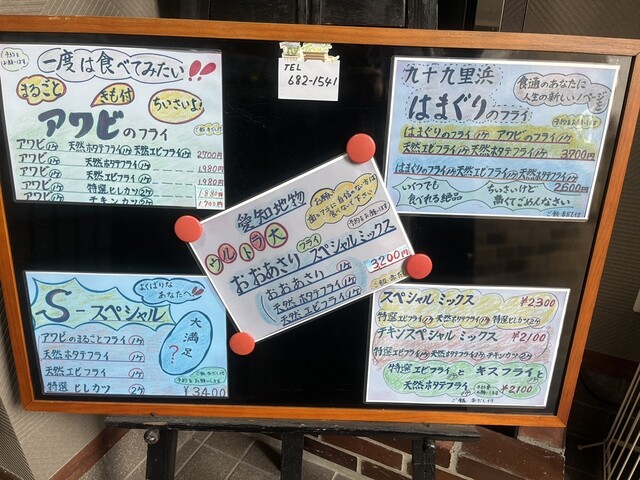 一度は食べてみたい!!
まるごと
きも付
ちいさいよ!
アワビのフライ
アワビ1ケ 天然ホタテフライ1ケ 天然エビフライ1ケ 2700円
アワビ1ケ 天然ホタテフライ1ケ 1,980円
アワビ1ケ 天然エビフライ1ケ 1,980円
アワビ1ケ 特選ヒレカツ2ケ
アワビ1ケ チキンカツ2ケ
TEL
682-1541
九十九里浜
はまぐりのフライ
食通のあなたに
人生の新しい1ページを
はまぐりのフライ1ケ アワビのフライ1ケ
天然エビフライ1ケ 天然ホタテフライ1ケ 3700円
はまぐりのフライ1ケ 天然エビフライ1ケ 天然ホタテフライ1ケ
2600円
いくつでも
食べれる絶品
ちいさいけど
高くてごめんなさい
ご飯 赤だし付
愛知地物
ウルトラ大
フライ
おおあさり スペシャルミックス
3,200円
おおあさり 1ケ
天然ホタテフライ1ケ
天然エビフライ1ケ
S-スペシャル
よくばりな
あなたへ!
大満足?
アワビのまるごとフライ1ケ
天然ホタテフライ1ケ
天然エビフライ1ケ
特選ヒレカツ2ケ
¥3400
スペシャルミックス ¥2300
特選エビフライ1ケ 天然ホタテフライ1ケ 特選ヒレカツ2ケ
チキンスペシャルミックス ¥2100
特選エビフライ1ケ 天然ホタテフライ1ケ チキンカツ2ケ
特選エビフライ1ケと キスフライ1ケと
天然ホタテフライ1ケ ¥2100
ご飯 赤だし付